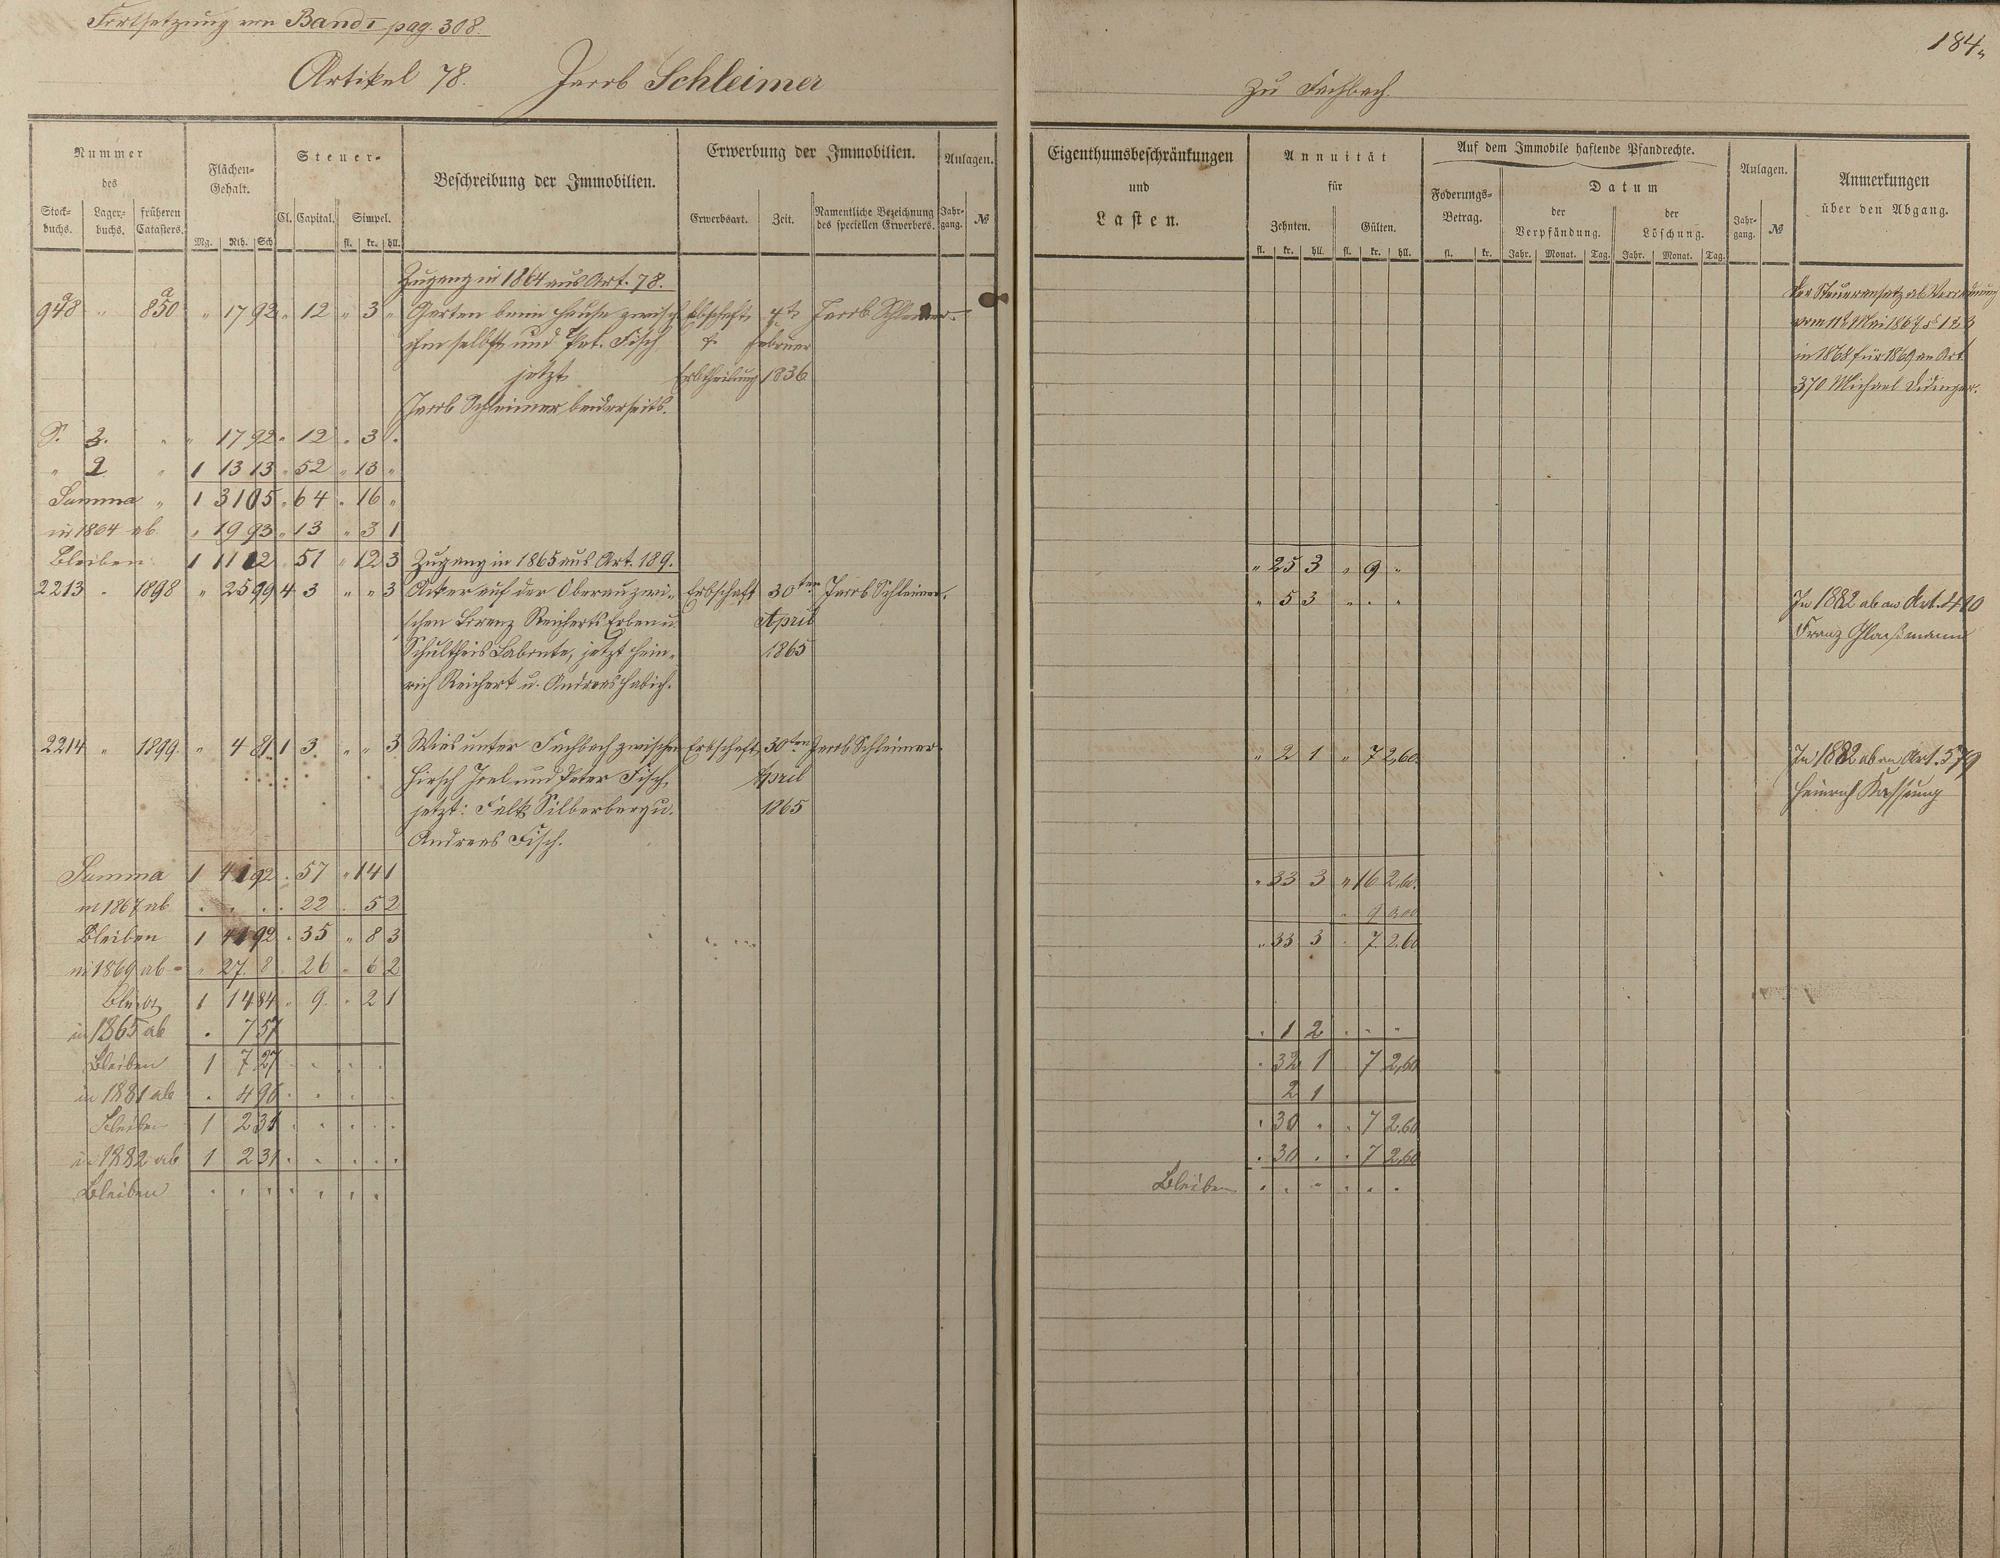 Fortsetzung von Band I pag. 308.
184.
Artikel 78. Jacob Schleimer
zu Fachbach.
Nummer des
Stock-buchs. Lager-buchs. früheren Catasters.
Flächen-Gehalt.
Mg. Rth. Sch.
Steuer-
Cl. Capital. Simpel.
fl. kr. hll.
Beschreibung der Immobilien.
Erwerbung der Immobilien.
Erwerbsart. Zeit. Namentliche Bezeichnung des speciellen Erwerbers.
Anlagen.
Jahr-gang. №
Eigenthumsbeschränkungen
und
Lasten.
Annuität
für
Zehnten. Gülten.
fl. kr. hll. fl. kr. hll.
Auf dem Immobile haftende Pfandrechte.
Foderungs-Betrag.
fl. kr.
Datum
der Verpfändung. der Löschung.
Jahr. Monat. Tag. Jahr. Monat. Tag.
Anlagen.
Jahr-gang. №
Anmerkungen
über den Abgang.
Zugang in 1864 aus Art. 78.
948a " 850a " 17 92 " 12 " 3 " Garten beim Hause zwisch Erbschaft 4t Jacob Schleimer.
ihm selbst und Pet. Fisch & Februar
jetzt Erbtheilung 1836
Jacob Schleimer beiderseits.
Der Steueransatz ab Verordnung
vom 11t Mai 1867
in 1868 für 1869 an Art.
370 Michael
S. 2. " " 17 92 " 12 " 3 "
" 1 " 1 13 13 " 52 " 13 "
Summa " 1 31 05 " 64 " 16 "
in 1864 ab " 19 93 " 13 " 3 1
Bleiben 1 11 12 " 51 " 12 3 Zugang in 1865 aus Art. 189. " 25 3 " 9 "
2213 " 1898 " 25 99 4 3 " " 3 Acker auf der Oberau zwi- Erbschaft 30ten Jacob Schleimer. " 5 3 " " " In 1882 ab an Art. 410
schen Lorenz Reicherts Erben u. April Franz Glaßmann
Schultheis Labonte, jetzt Hein- 1865
rich Reichert u. Andreas Habich.
2214 " 1899 " 4 81 1 3 " " 3 Wies unter Fachbach zwischen Erbschaft 30ten Jacob Schleimer. " 2 1 " 7 2,60. In 1882 ab an Art. 579
Hirsch Joel und Peter Fisch, April Heinrich
jetzt: Felix Silberberg u. 1865
Andreas Fisch.
Summa 1 41 92 " 57 " 14 1 " 33 3 " 16 2,60.
in 1867 ab . . . . 22 . 5 2 . 9 0,00
Bleiben 1 41 92 . 35 " 8 3 " 33 3 . 7 2,60
in 1869 ab " 27 8 26 " 6 2
Bleibt 1 14 84 " 9 . 2 1
in 1865 ab . 7 57 . 1 2 . . "
Bleiben 1 7 27 . . . . . 32 1 7 2,60
in 1881 ab . 4 96 . . . . 2 1
Bleiben 1 2 31 . . . . . . 30 . . 7 2,60
in 1882 ab 1 2 31 . . . . . . 30 . . 7 2,60
Bleiben . . . . . . . Bleiben . . " . . .